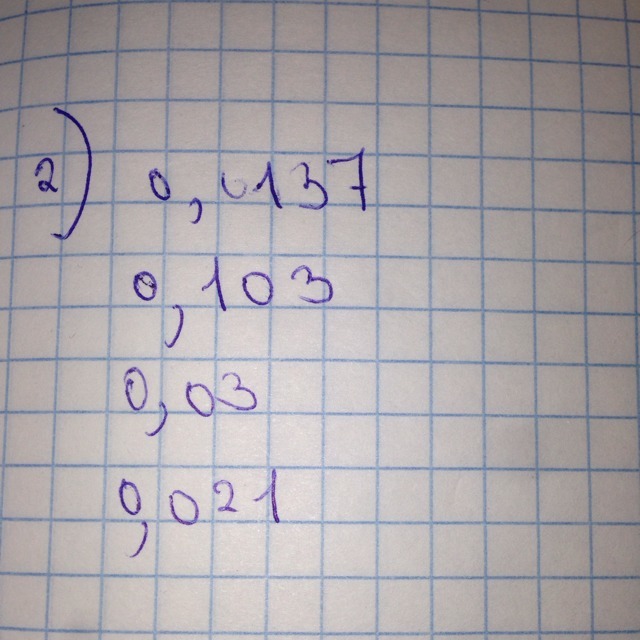 2) 0,0137
0,103
0,03
0,021